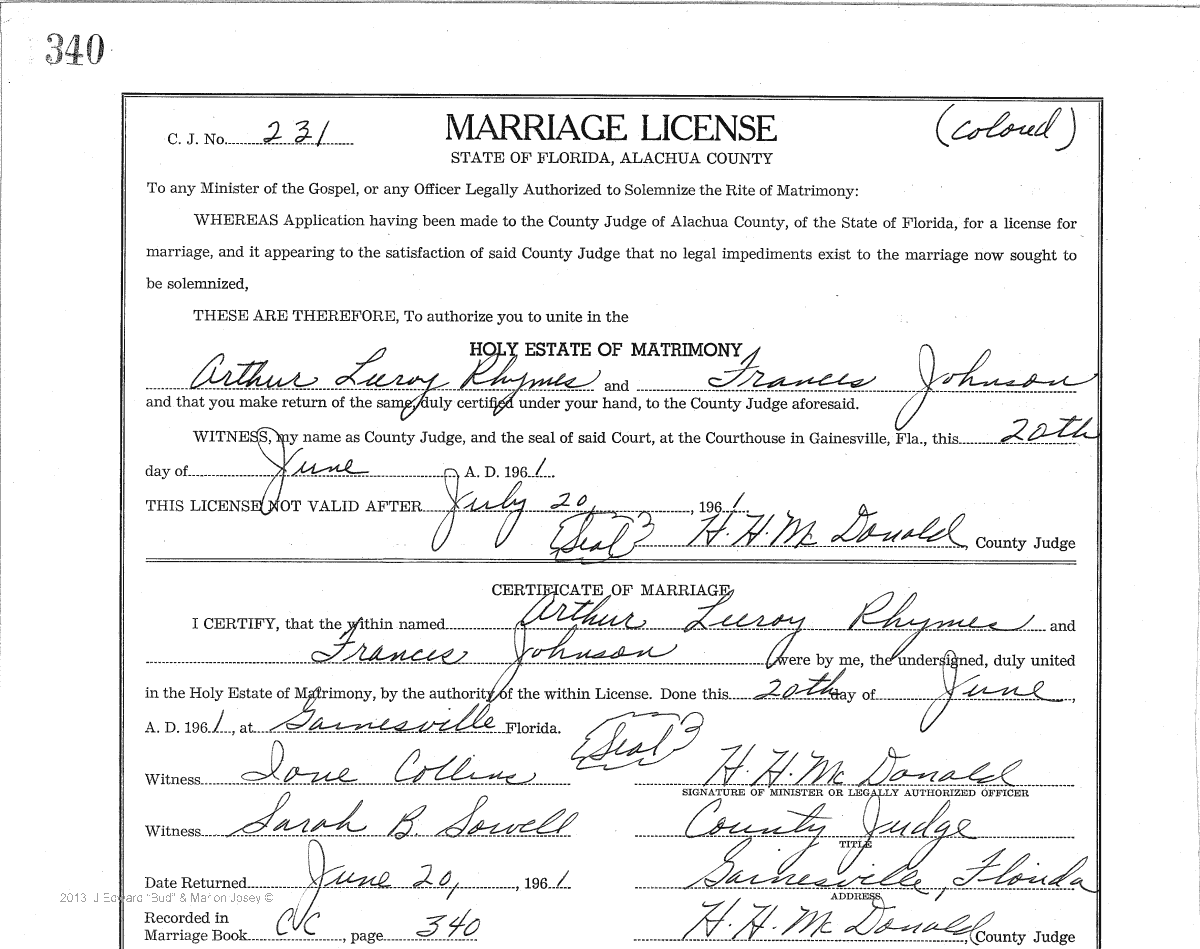 340
C. J. No. 231
MARRIAGE LICENSE
(colored)
STATE OF FLORIDA, ALACHUA COUNTY
To any Minister of the Gospel, or any Officer Legally Authorized to Solemnize the Rite of Matrimony:
WHEREAS Application having been made to the County Judge of Alachua County, of the State of Florida, for a license for
marriage, and it appearing to the satisfaction of said County Judge that no legal impediments exist to the marriage now sought to
be solemnized,
THESE ARE THEREFORE, To authorize you to unite in the
HOLY ESTATE OF MATRIMONY
Arthur Leeroy Rhymes and Frances Johnson
and that you make return of the same, duly certified under your hand, to the County Judge aforesaid.
WITNESS, my name as County Judge, and the seal of said Court, at the Courthouse in Gainesville, Fla., this 20th
day of June A. D. 1961.
THIS LICENSE NOT VALID AFTER July 20, , 1961
(Seal) H. H. Mc Donald, County Judge
CERTIFICATE OF MARRIAGE
I CERTIFY, that the within named Arthur Leeroy Rhymes and
Frances Johnson were by me, the undersigned, duly united
in the Holy Estate of Matrimony, by the authority of the within License. Done this 20th day of June,
A. D. 1961, at Gainesville Florida.
(Seal)
Witness Ione Collins H. H. Mc Donald
SIGNATURE OF MINISTER OR LEGALLY AUTHORIZED OFFICER
Witness Sarah B Sowell County Judge
TITLE
Date Returned June 20, , 1961 Gainesville, Florida
ADDRESS
2013 J Edward "Bud" & Marion Josey ©
Recorded in
Marriage Book CC, page 340 H. H. Mc Donald County Judge